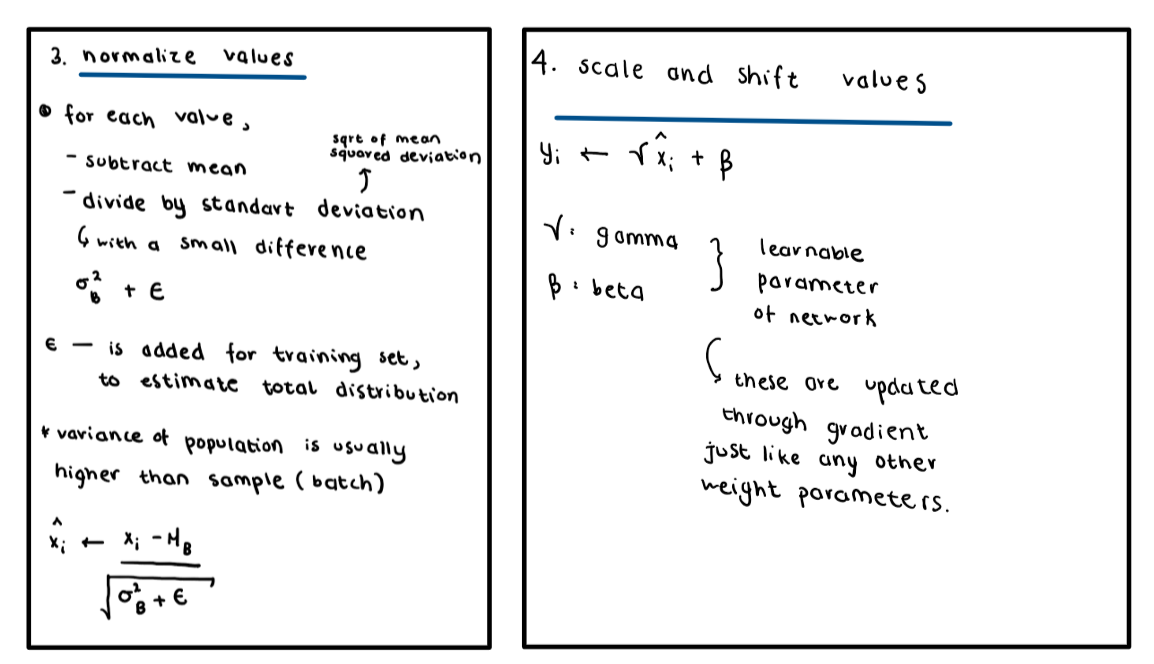 3. normalize values
for each value,
- subtract mean
sqrt of mean
squared deviation
- divide by standart deviation
with a small difference
σ²_B + ε
ε — is added for training set,
to estimate total distribution
* variance of population is usually
higher than sample (batch)
x̂ᵢ ← xᵢ - μ_B
√σ²_B + ε
4. scale and shift values
yᵢ ← γ x̂ᵢ + β
γ: gamma
β: beta
} learnable
parameter
of network
these are updated
through gradient
just like any other
weight parameters.